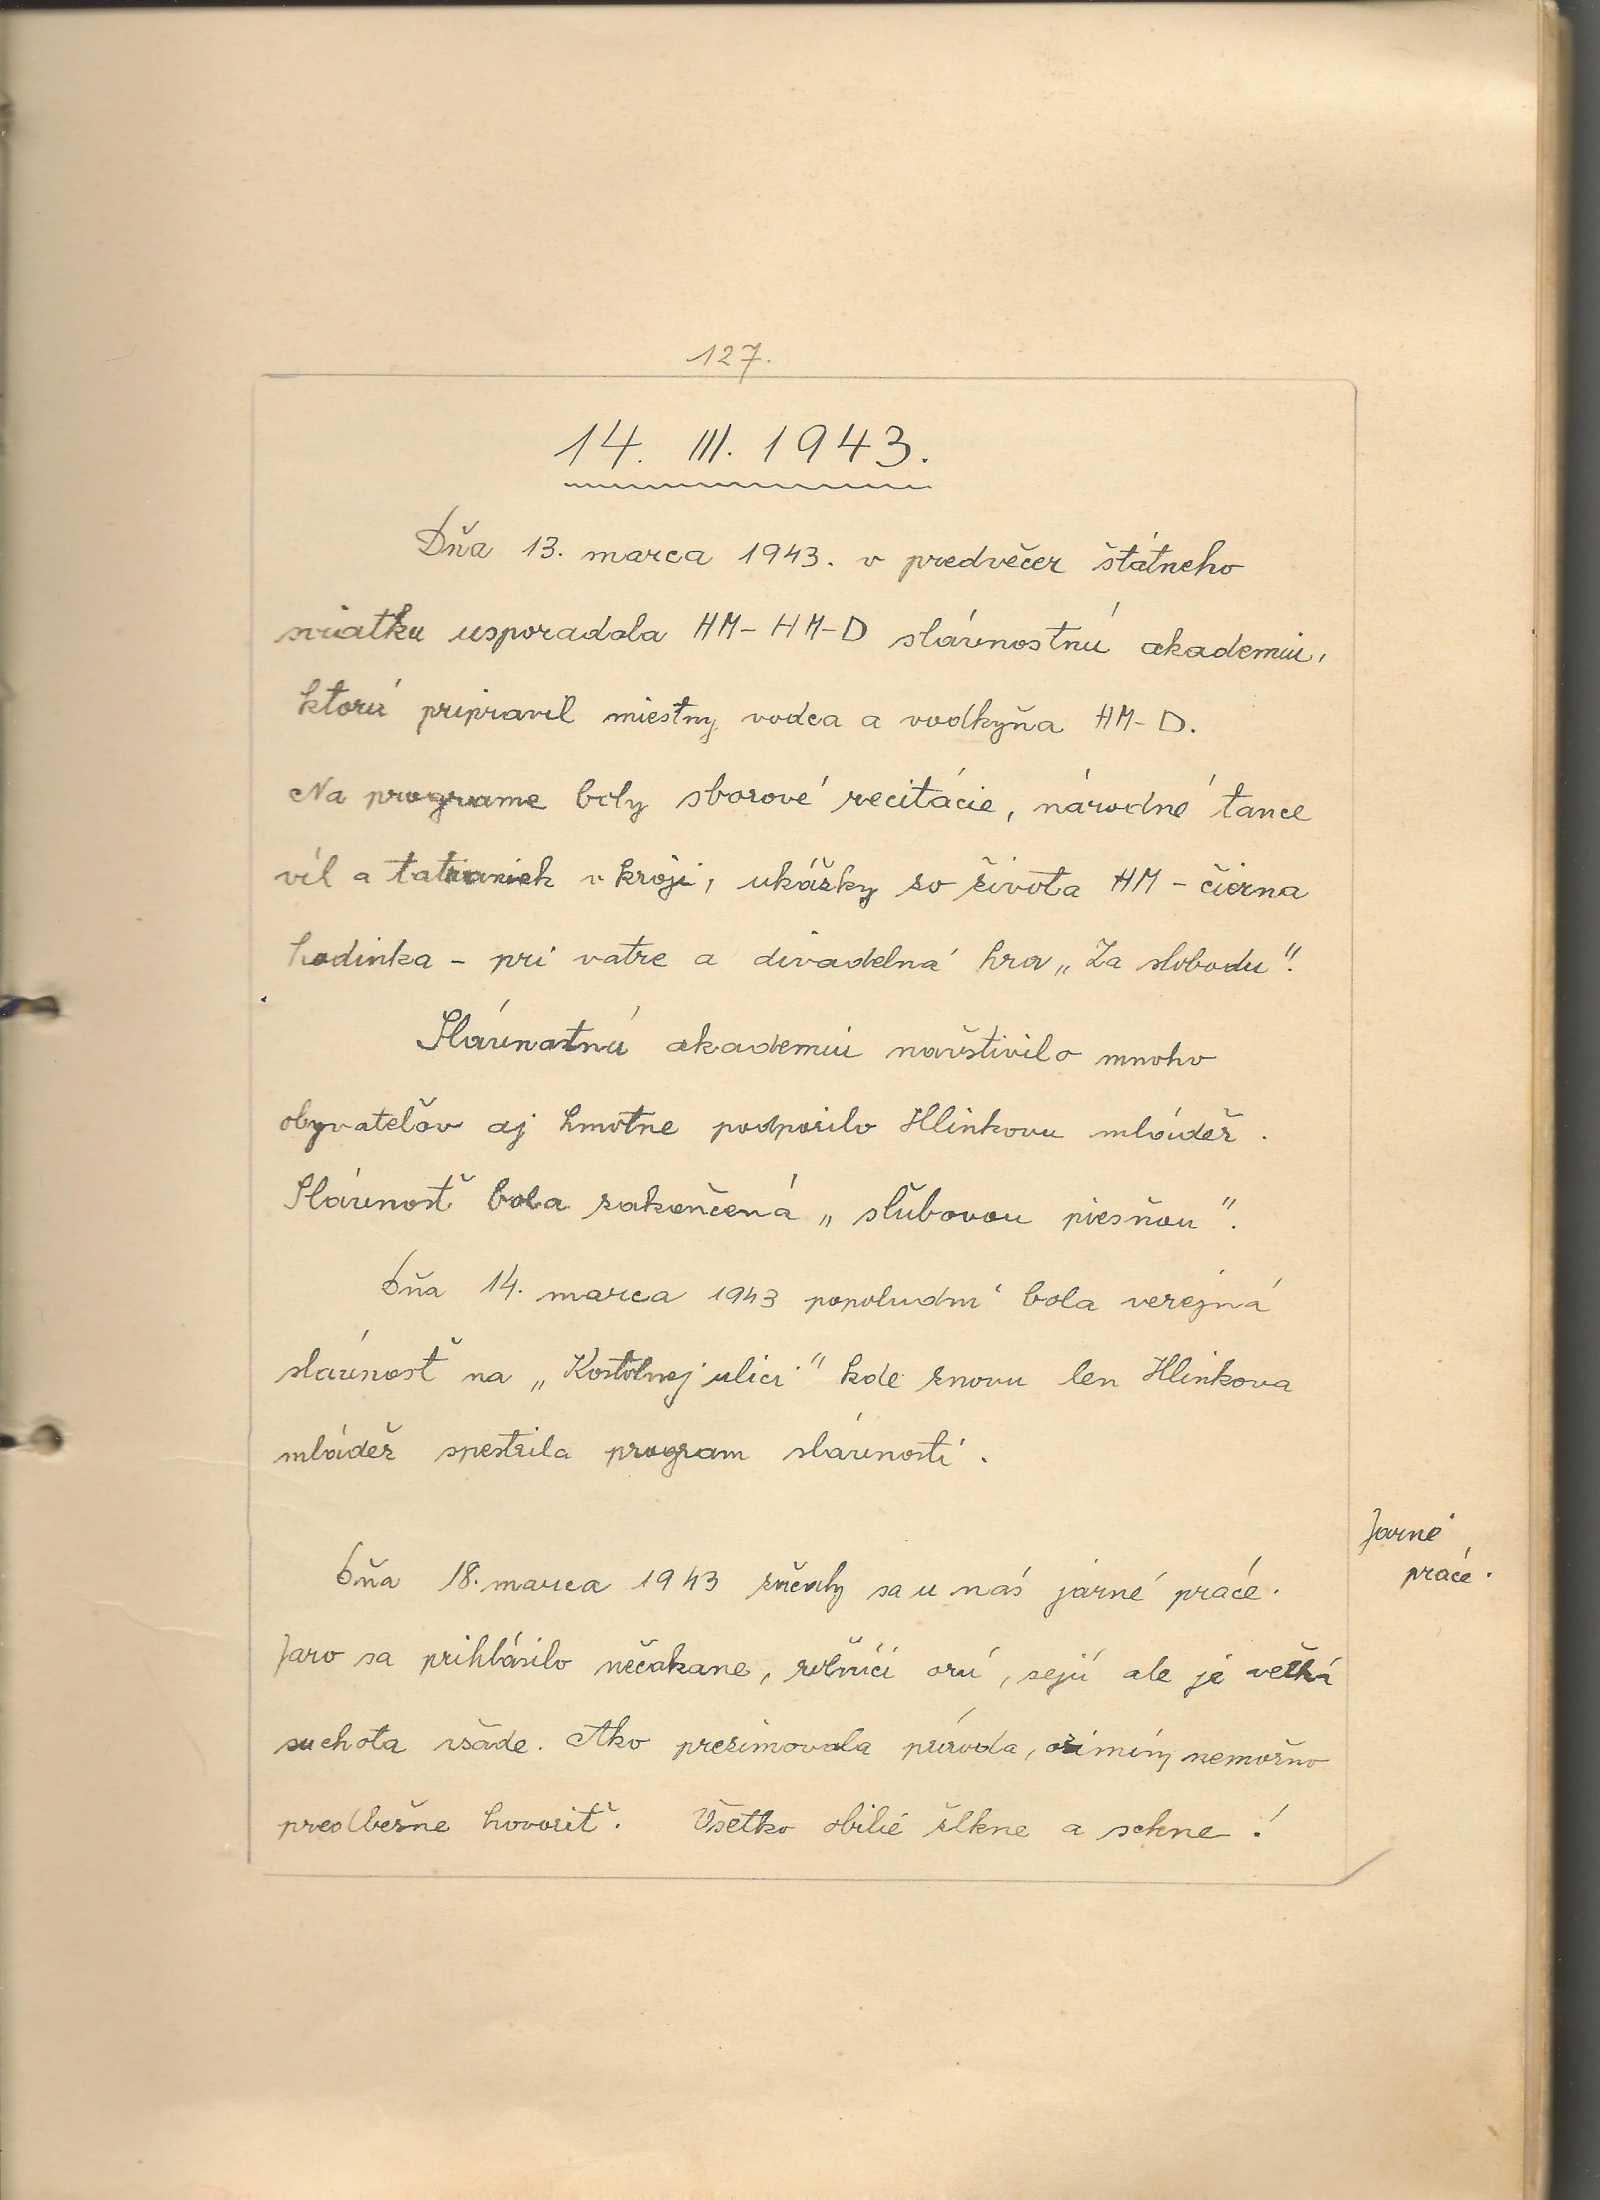 127.
14. III. 1943.
Dňa 13. marca 1943. v predvěčer štátneho
sviatku usporadala HM-HM-D slávnostnú akademiu,
ktorú pripravil miestny vodca a vodkyňa HM-D.
Na programe boly sborové recitácie, národné tance
víl a tatraniek v kroji, ukážky zo života HM - čierna
hodinka - pri vatre a divadelná hra „Za slobodu".
Slávnostnú akademiu navštivilo mnoho
obyvateľov aj hmotne podporilo Hlinkovu mládež.
Slávnosť bola zakončená „sľubovou piesňou".
Dňa 14. marca 1943 popoludní bola verejná
slávnosť na „Kostolnej ulici" kde znovu len Hlinkova
mládež spestrila program slávnosti.
Jarné
práce.
Dňa 18. marca 1943 začaly sa u nás jarné práce.
Jaro sa prihlásilo nečakane, roľníci orú, sejú ale je veľká
suchota všade. Ako prezimovala príroda, oziminy nemožno
predbežne hovoriť. Všetko obilié žlkne a schne!